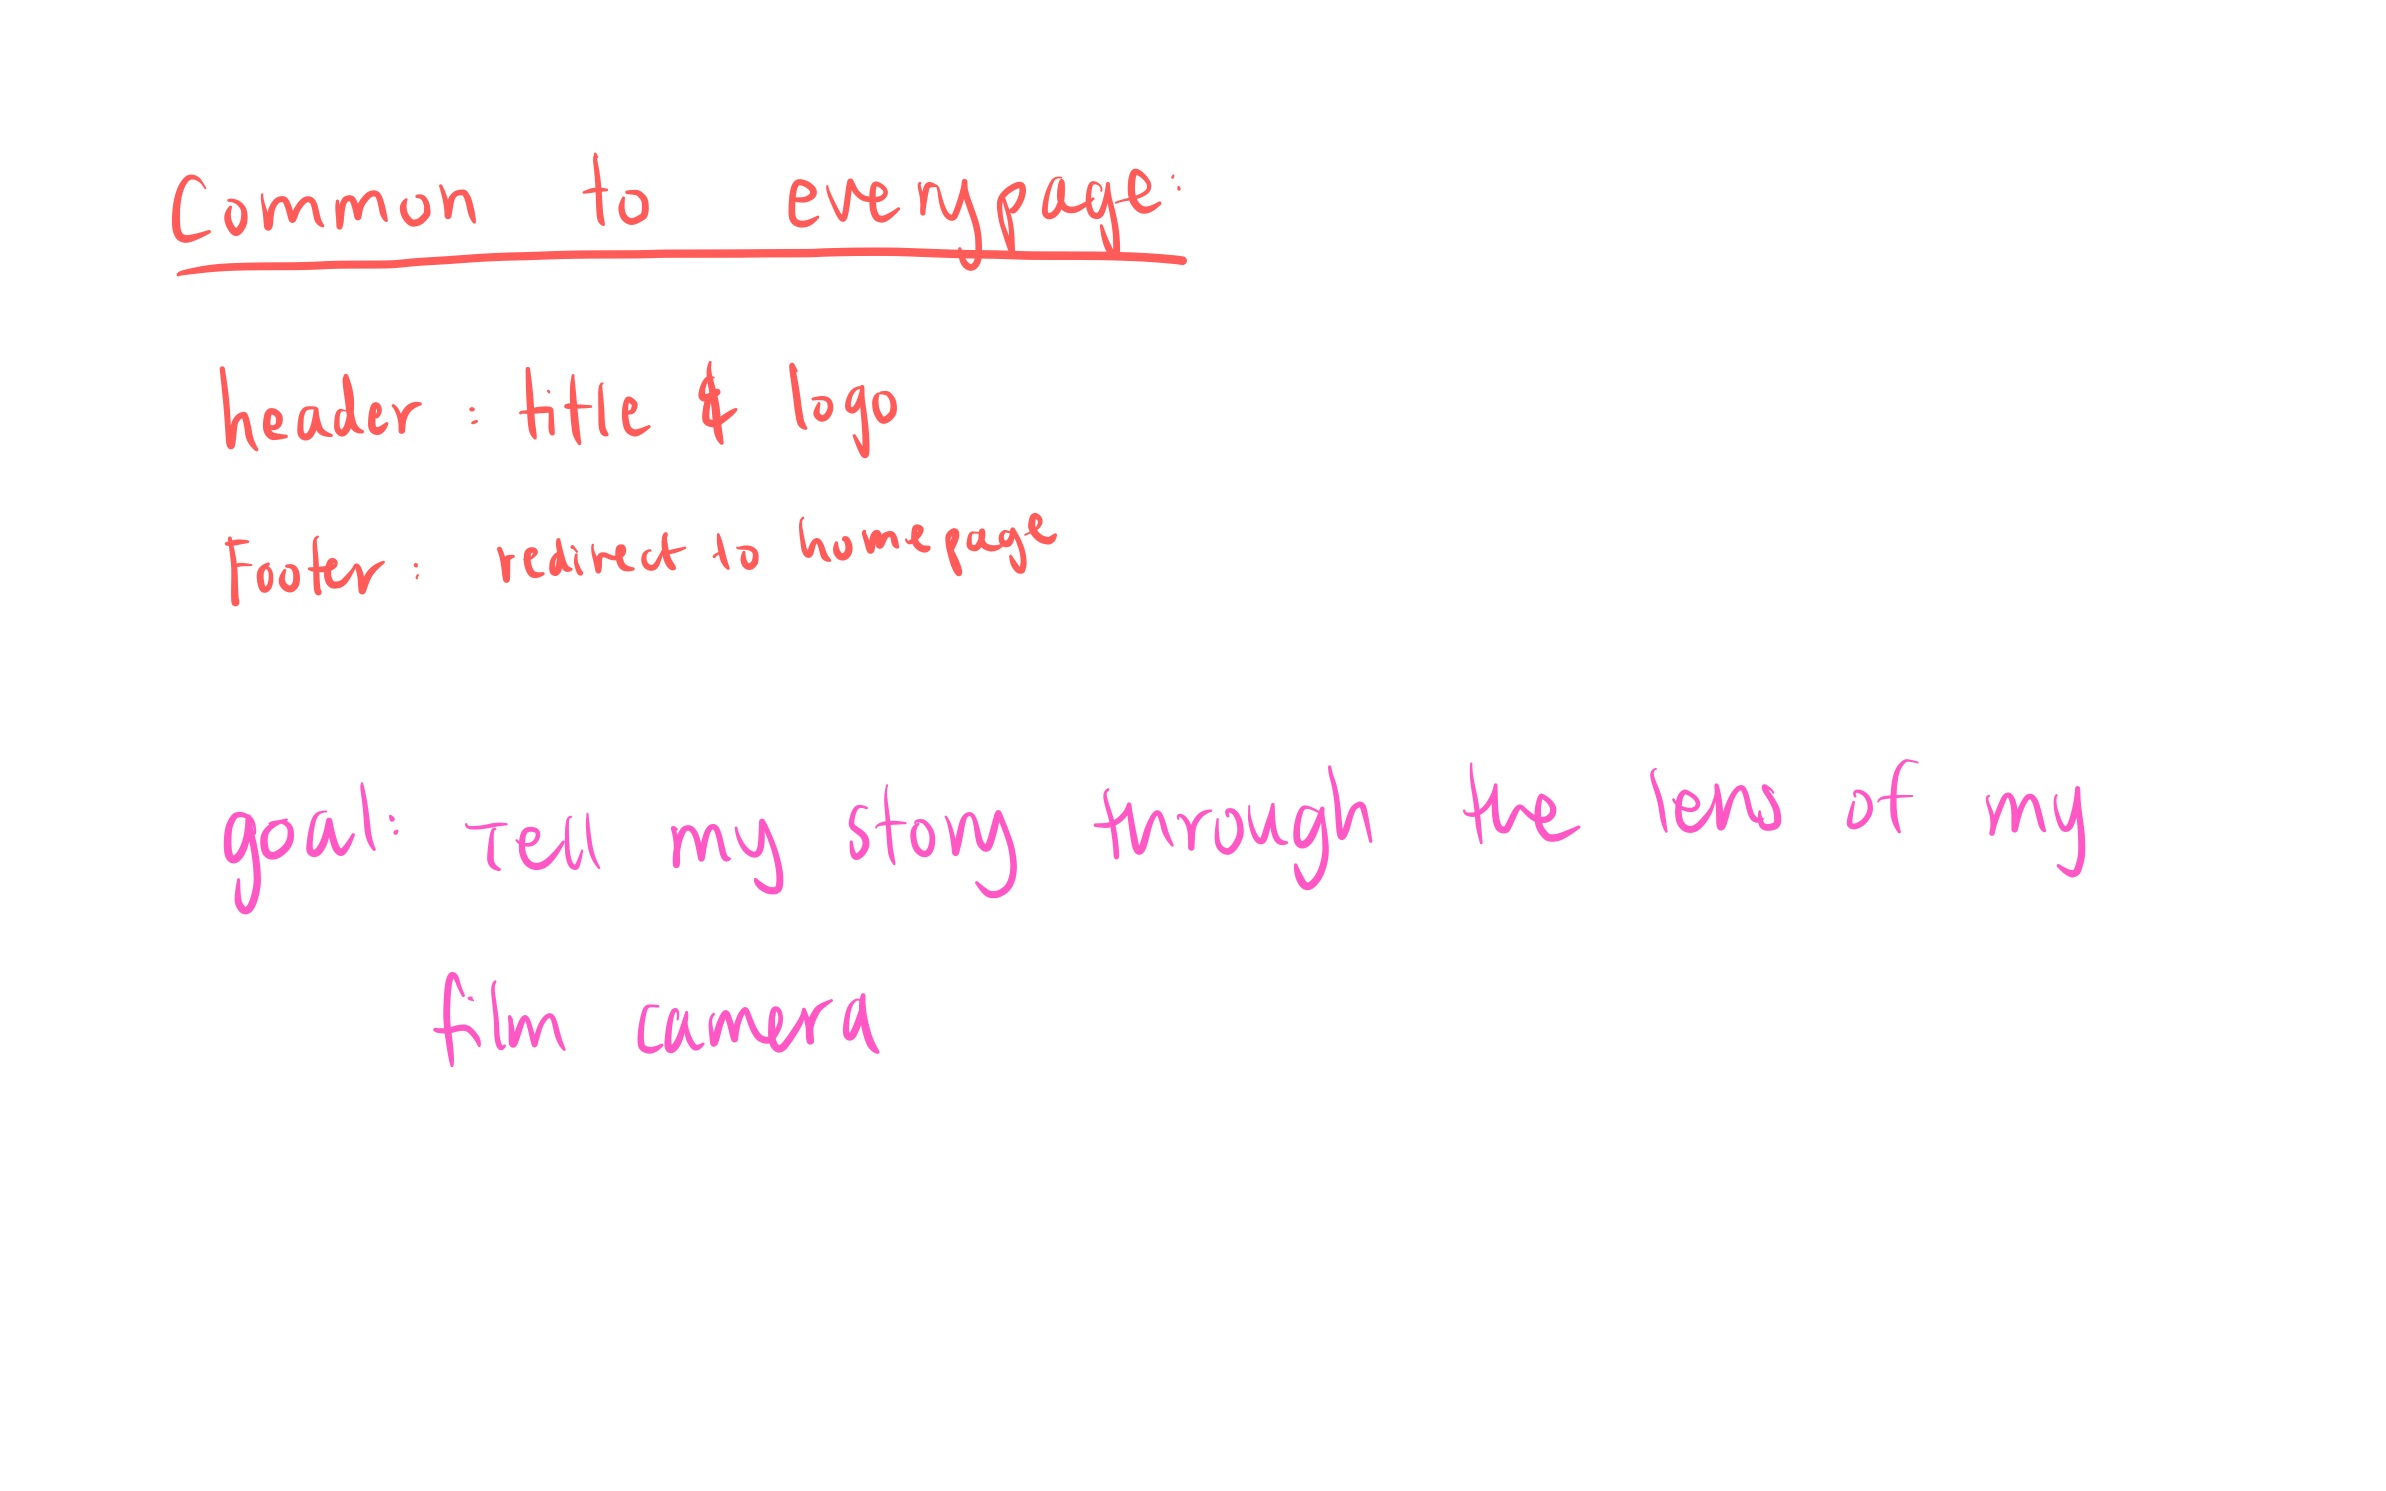 Common to every page:
header : title & logo
Footer : redirect to homepage
goal: Tell my story through the lens of my
film camera